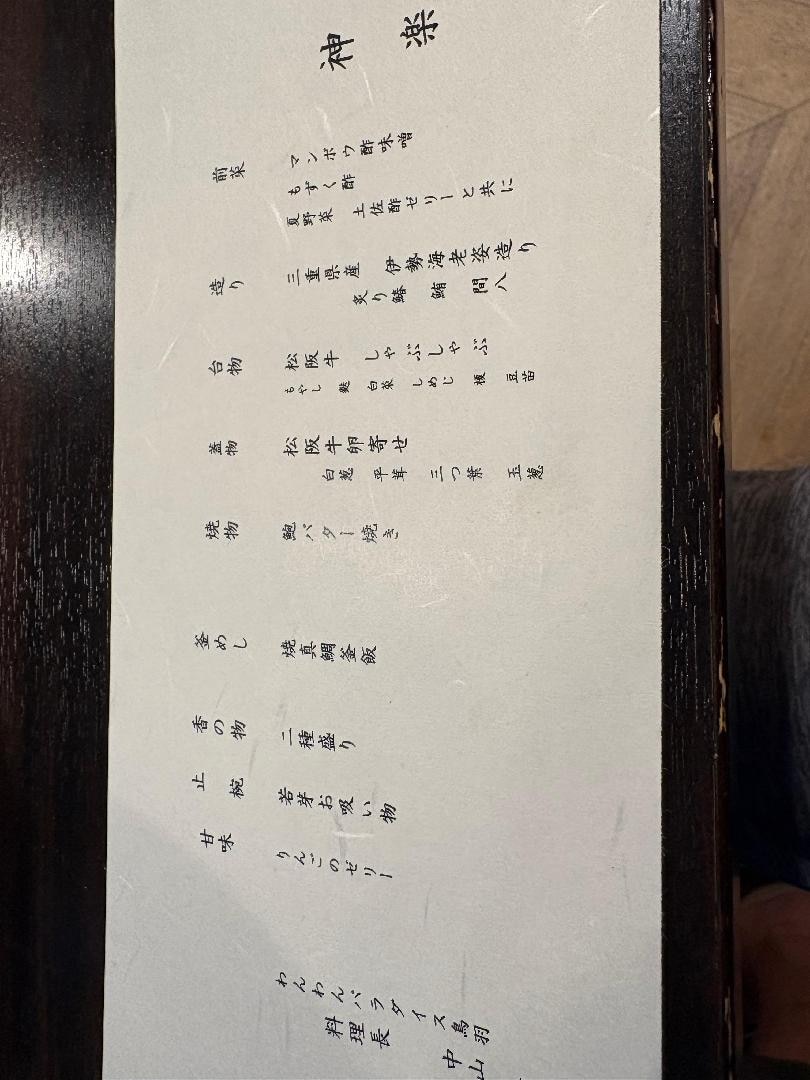 神楽
前菜
マンボウ酢味噌
もずく酢
夏野菜 土佐酢ゼリーと共に
造り
三重県産 伊勢海老姿造り
炙り鰆 鮪 間八
台物
松阪牛 しゃぶしゃぶ
もやし 麩 白菜 しめじ 榎 豆苗
蓋物
松阪牛卵寄せ
白葱 平茸 三つ葉 玉葱
焼物
鮑バター焼き
釜めし
焼真鯛釜飯
香の物
二種盛り
止椀
若芽お吸い物
甘味
りんごのゼリー
わんわんパラダイス鳥羽
料理長 中山